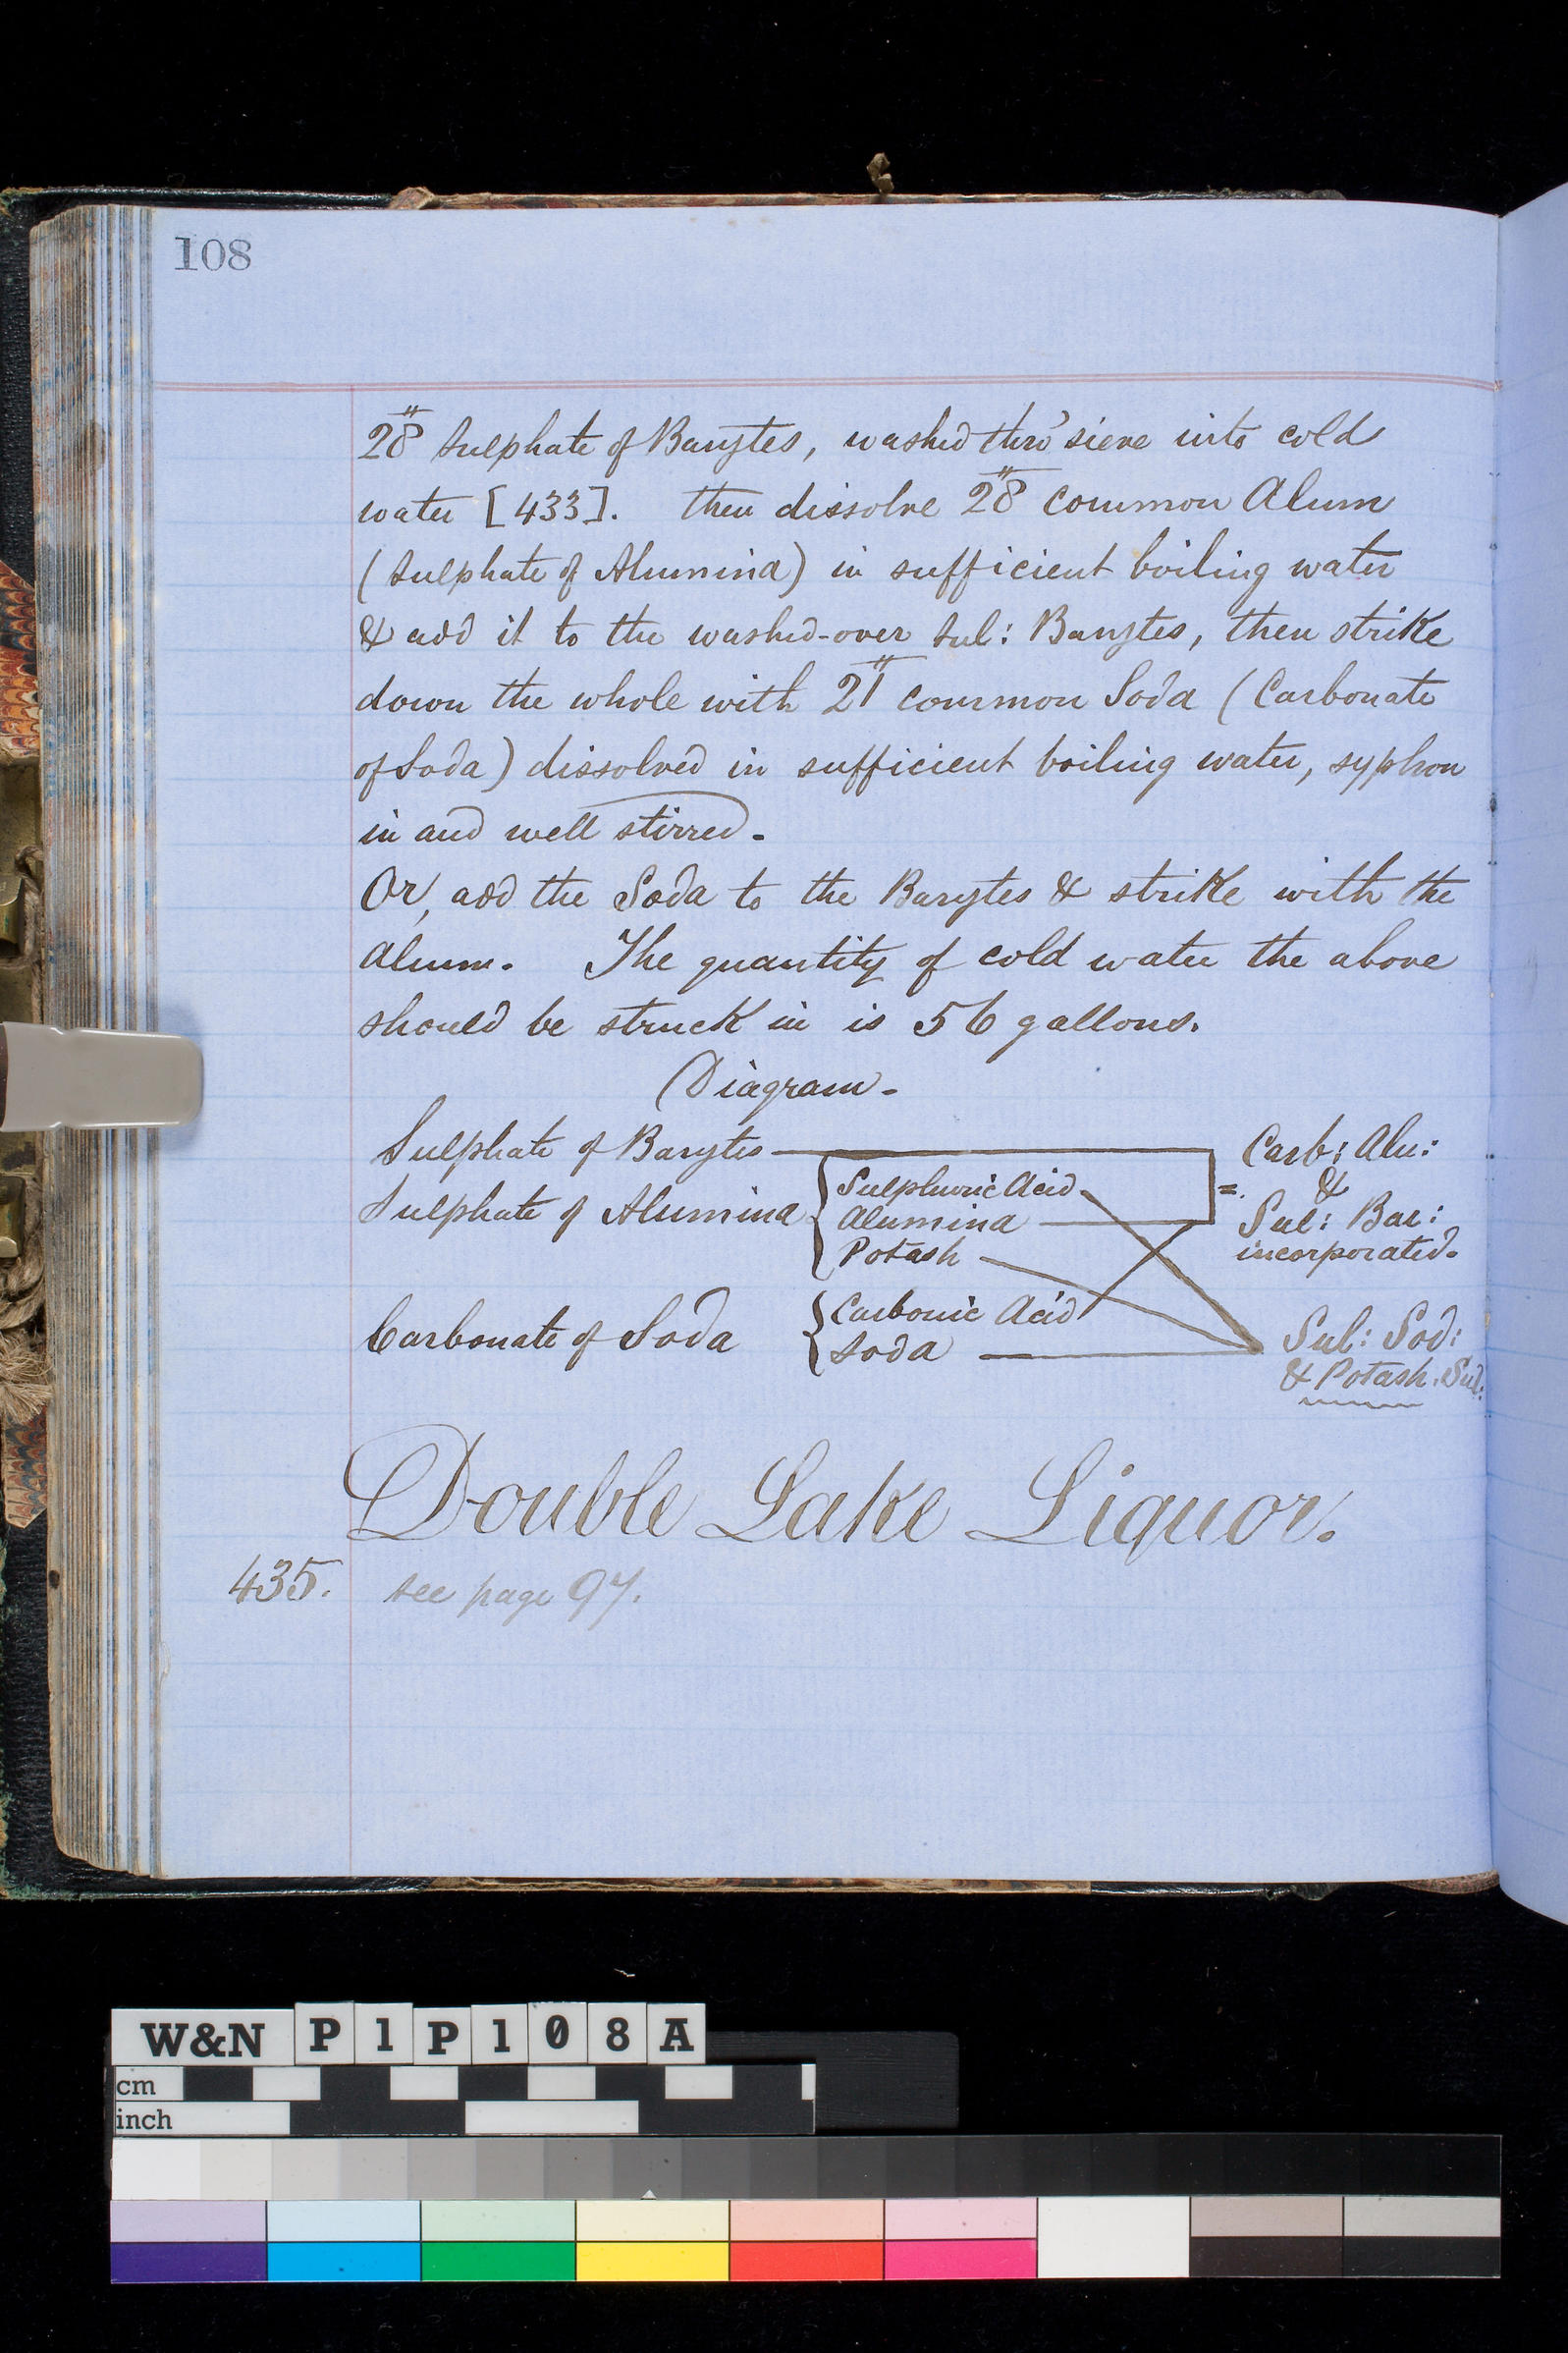 108
28" Sulphate of Barytes, washed thro' sieve into cold
water [433]. then dissolve 28" common Alum
(Sulphate of Alumina) in sufficient boiling water
& add it to the washed-over Sul: Barytes, then strike
down the whole with 21" common Soda (Carbonate
of Soda) dissolved in sufficient boiling water, syphon
in and well stirred.
Or, add the Soda to the Barytes & strike with the
Alum. The quantity of cold water the above
should be struck in is 56 gallons.
Diagram.
Sulphate of Barytes
Sulphate of Alumina
{Sulphuric Acid
Alumina
Potash
Carbonate of Soda
{Carbonic Acid
Soda
=
Carb: Alu:
&
Sul: Bar:
incorporated.
Sul: Sod:
& Potash. Sul:
Double Lake Liquor.
435. see page 97.
W&N P1P108A
cm
inch